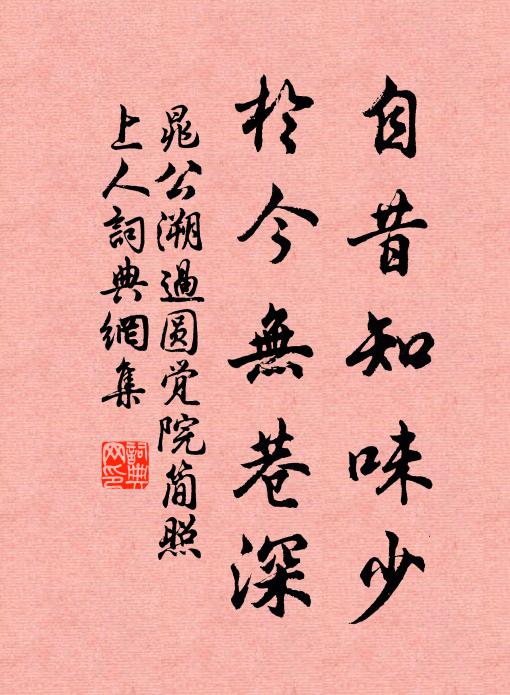 自昔知味少
於今無巷深
晁公溯過圆觉院简照
上人詞典網集
詞典
网印